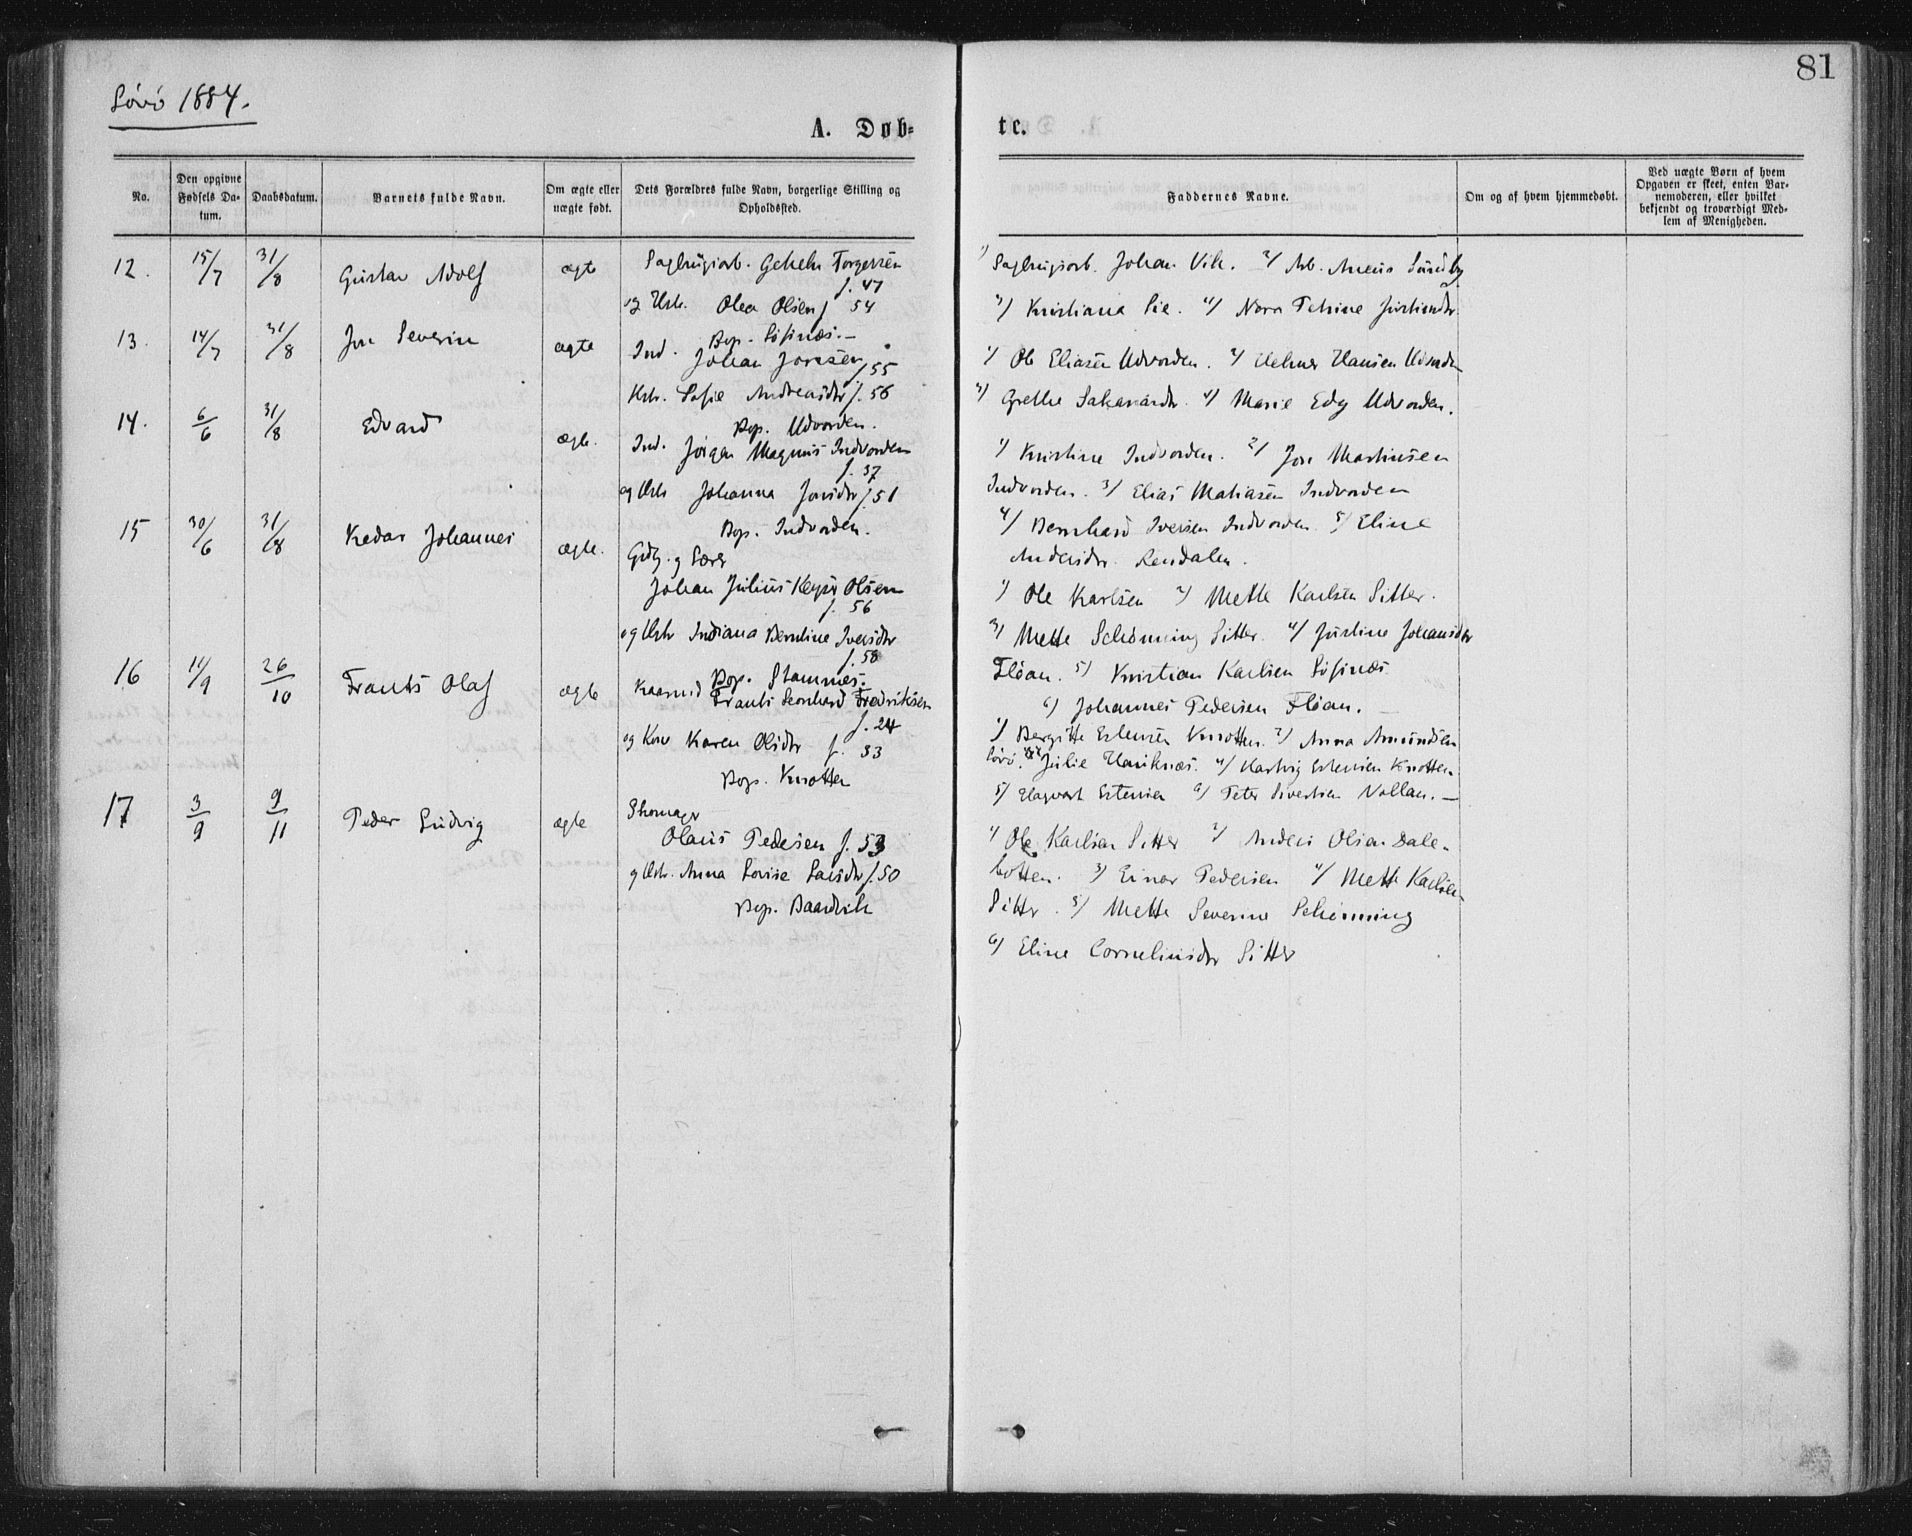 81
Sørø 1884.
A. Døb=
te.
No.
Den opgivne Fødsels Da-tum.
Daabsdatum.
Barnets fulde Navn.
Om ægte eller uægte født.
Dets Forældres fulde Navn, borgerlige Stilling og Opholdssted.
Faddernes Navne.
Om og af hvem hjemmedøbt.
Ved uægte Børn af hvem Opgaven er skeet, enten Bar-nemoderen, eller hvilket bekjendt og troværdigt Med-lem af Menigheden.
12. 15/7 31/8 Gustav Adolf ægte
Sagbrugsarb. Torgersen
f. 47
og Ustr. Olea Olsen f 54
Bop. Søsinæs.—
1) Sagbrugsarb. Johan Vik. 2) Arb. Sundby
3) Kristiana Lie. 4) Nora Petrine
13. 14/7 31/8 Jon Severin ægte
Ind. Johan Jonesen
f. 55
Ustr. Sofie Andreasdtr f. 56
Bop. Udvorden.
1) Ole Eliasen Udvorden. 2) Helmer Hansen
3) Grethe 4) Marie Edg Udvorden.
14. 6/6 31/8 Edvard ægte.
Ind. Jørgen Magnus Indvorden
f. 37
og Ustr Johanna Jonsdtr f. 51
Bop. Indvorden.
1) Kristine Indvorden. 2) Jon Martinsen
Indvorden. 3) Elias Matiasen Indvorden
4) Bernhard Iversen Indvorden 5) Eline
Andersdtr. Rendalen.
15 30/6 31/8 Kedar Johannes ægte.
og Lærer
Johan Julius Keyser Olsen
f. 56
og Ustr Indiana Berntine Iversdtr
f. 58
Bop. Stamnes.
1) Ole Karlsen 2) Mette Karlsen Sitter.
3) Mette Schønning Sitter. 4) Justine Johansdtr
Fløan. 5) Kristian Karlsen Søsinæs
6) Johannes Pedersen Fløan.
16 14/9 26/10 Frants Olaf ægte
Kaarmd Frants Leonhard Fredriksen
f. 24
og Kone Karen Olsdtr f. 33
Bop. Knotten
1) Bergitte Estensen Knotten. 2) Anna Amundsen
Sørø. 3) Julie 4) Hartvig Estensen Knotten.
5) Estensen 6) Peter Sivertsen Vollan.—
17 3/9 9/11 Peder Ludvig ægte
Skomager
Olaus Pedersen f. 53
og Ustr. Anna Lovise Larsdtr f. 50
Bop. Baardvik
1) Ole Karlsen Sitter 2) Anders Olsen Dale-
botten. 3) Einar Pedersen 4) Mette Karlsen
Sitter. 5) Mette Severine Schønning
6) Eline Corneliusdtr Sitter